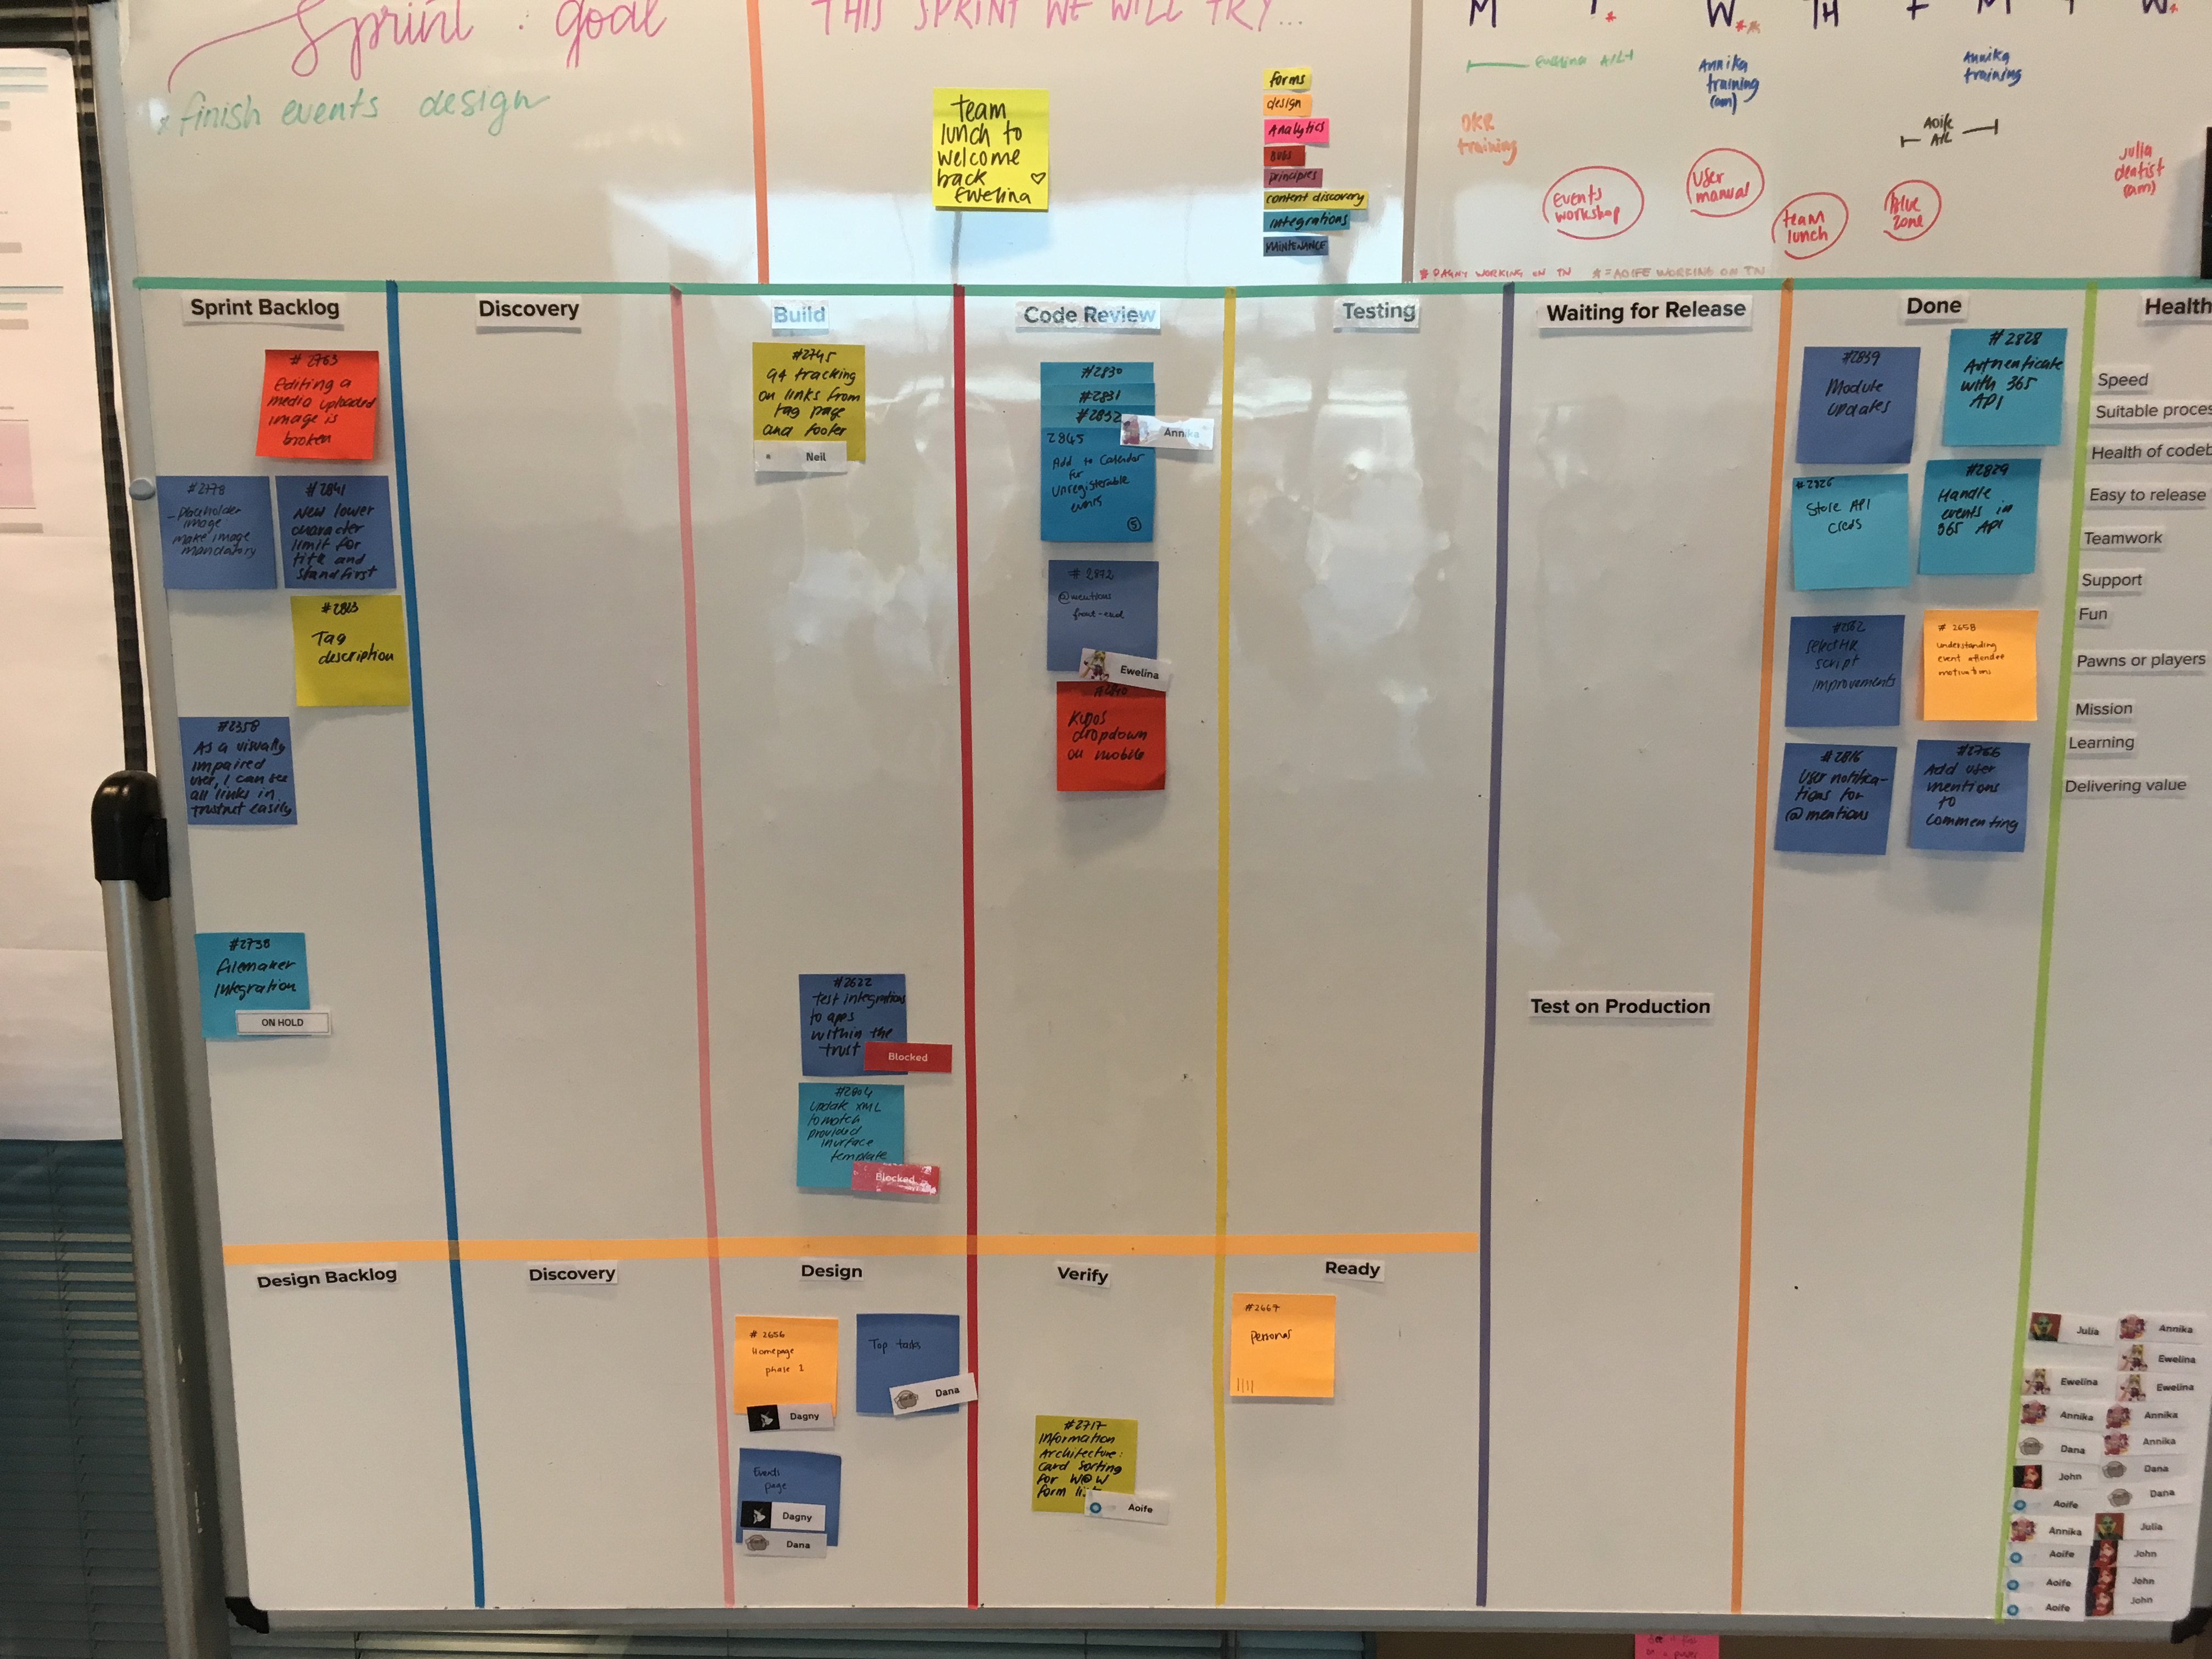 Sprint goal
finish events design
THIS SPRINT WE WILL TRY...
team
lunch to
welcome
back
Ewelina
forms
design
Analytics
BUGS
principles
content discovery
integrations
MAINTENANCE
M
W
TH
F
M
T
W
Ewelina A/L
Annika
training
(am)
Annika
training
OKR
training
Aoife
A/L
Julia
dentist
(am)
Events
workshop
User
manual
team
lunch
blue
zone
* DAGNY WORKING ON TN
* = AOIFE WORKING ON TN
Sprint Backlog
#2763
Editing a
media uploaded
image is
broken
#2778
- placeholder
image
make image
mandatory
#2841
New lower
character
limit for
title and
standfirst
Tag
description
#2358
As a visually
impaired
user, I can see
all links in
trustnet easily
#2738
filemaker
integration
ON HOLD
Discovery
Build
#2745
GA tracking
on links from
tag page
and footer
Neil
#2622
Test integrations
to apps
within the
trust
Blocked
#2804
update XML
to match
provided
template
Blocked
Code Review
#2830
#2831
#2832
Annika
2845
Add to Calendar
for
Unregisterable
events
5
#2872
@mentions
front-end
Ewelina
Kudos
dropdown
on mobile
Testing
Waiting for Release
Test on Production
Done
#2839
Module
updates
#2828
Authenticate
with 365
API
#2826
Store API
creds
#2829
Handle
events in
365 API
script
improvements
#2658
understanding
event attendee
motivations
#2816
User notifica-
tions for
@mentions
#2766
Add user
mentions
to
commenting
Health
Speed
Suitable proces
Health of codeb
Easy to release
Teamwork
Support
Fun
Pawns or players
Mission
Learning
Delivering value
Design Backlog
Discovery
Design
#2656
Homepage
phase 2
Dagny
Top tasks
Dana
Events
page
Dagny
Dana
Verify
#2717
Information
Architecture:
card sorting
for W@W
form
Aoife
Ready
#2667
Personas
Julia
Annika
Ewelina
Ewelina
Ewelina
Annika
Annika
Dana
Annika
John
Dana
Aoife
Dana
Annika
Julia
Aoife
John
Aoife
John
Aoife
John